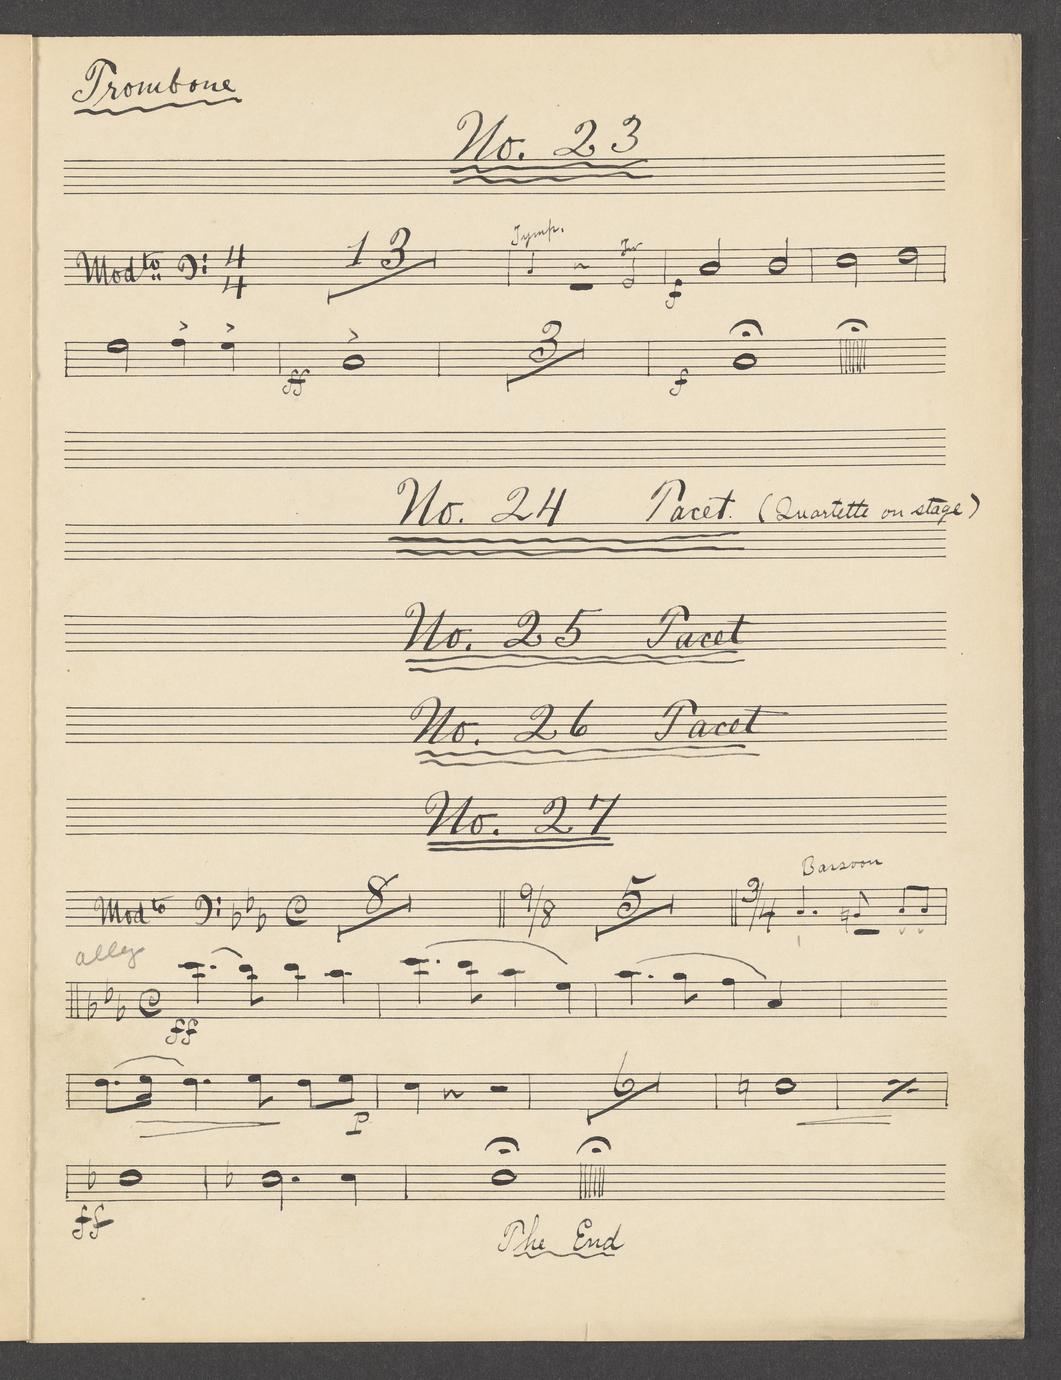 Trombone
No. 23
Modto 4/4 13 Tymp.
f
ff 3 f
No. 24 Tacet. (Quartette on stage)
No. 25 Tacet
No. 26 Tacet
No. 27
Modto C 8 9/8 5 3/4 Bassoon
alleg
C ff
6
P
ff
The End